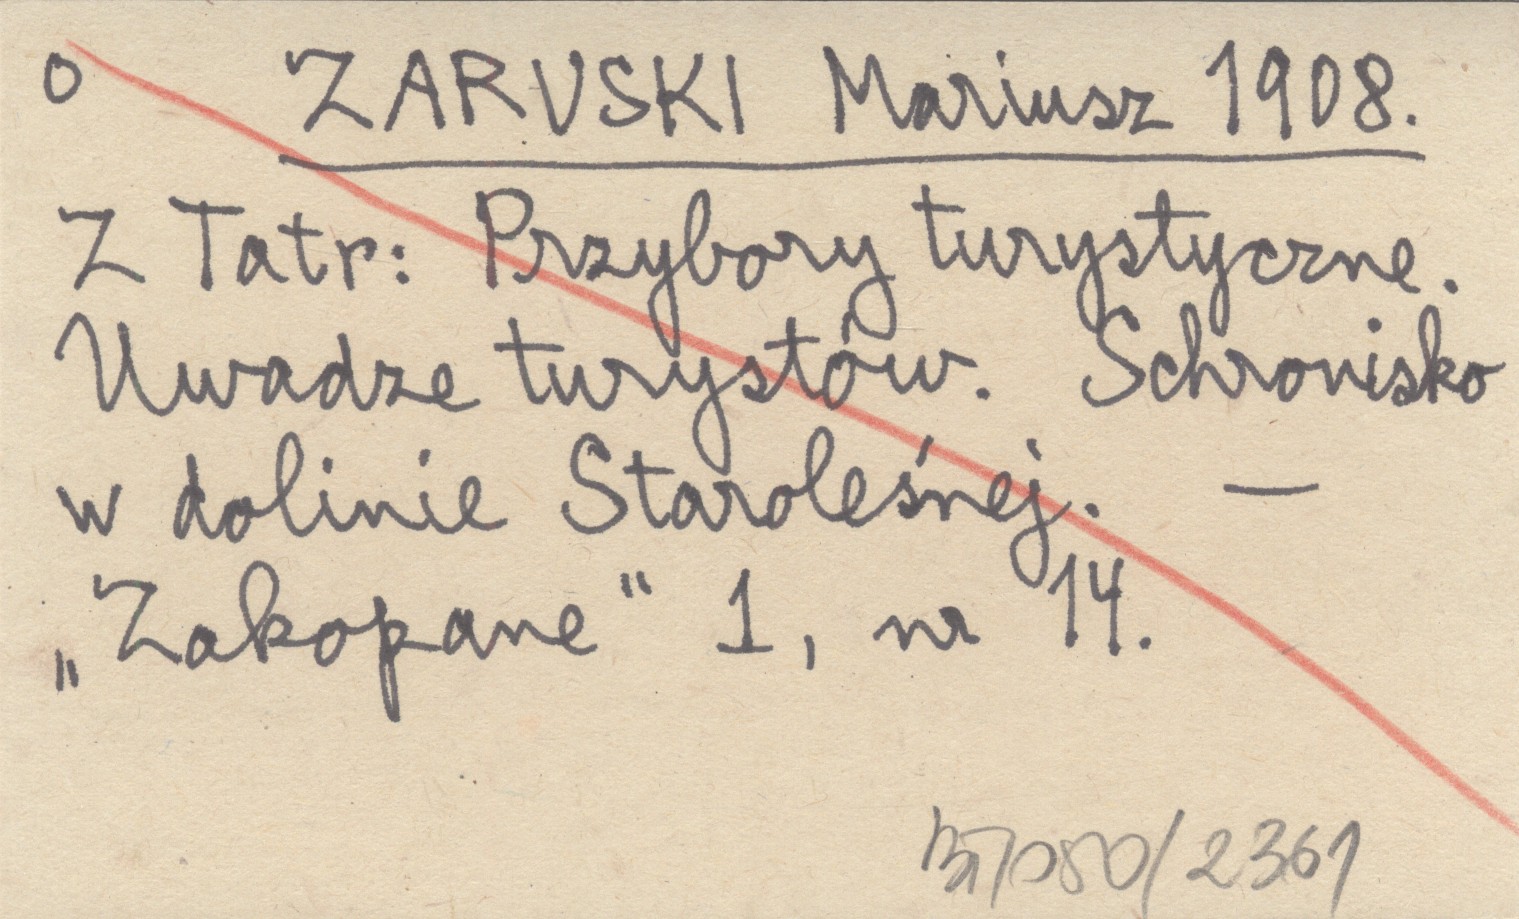 o ZARUSKI Mariusz 1908.
Z Tatr: Przybory turystyczne.
Uwadze turystów. Schronisko
w dolinie Staroleśnej. —
„Zakopane" 1, nr 14.
/2361